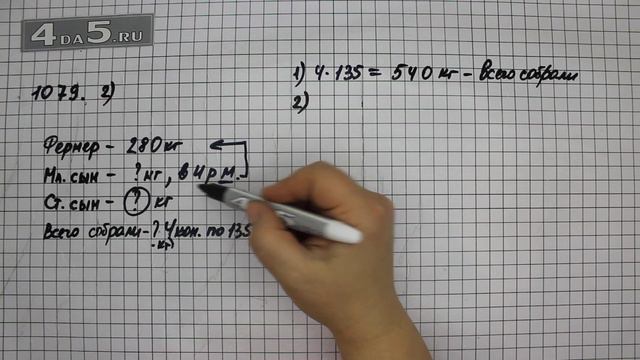 4DA5.RU
1079. 2)
1) 4·135 = 540 кг – всего собрали
2)
Фермер – 280 кг
Мл. сын – ? кг, в 4 р м.
Ст. сын – ? кг
Всего собрали – ? 4 кон. по 135
кг